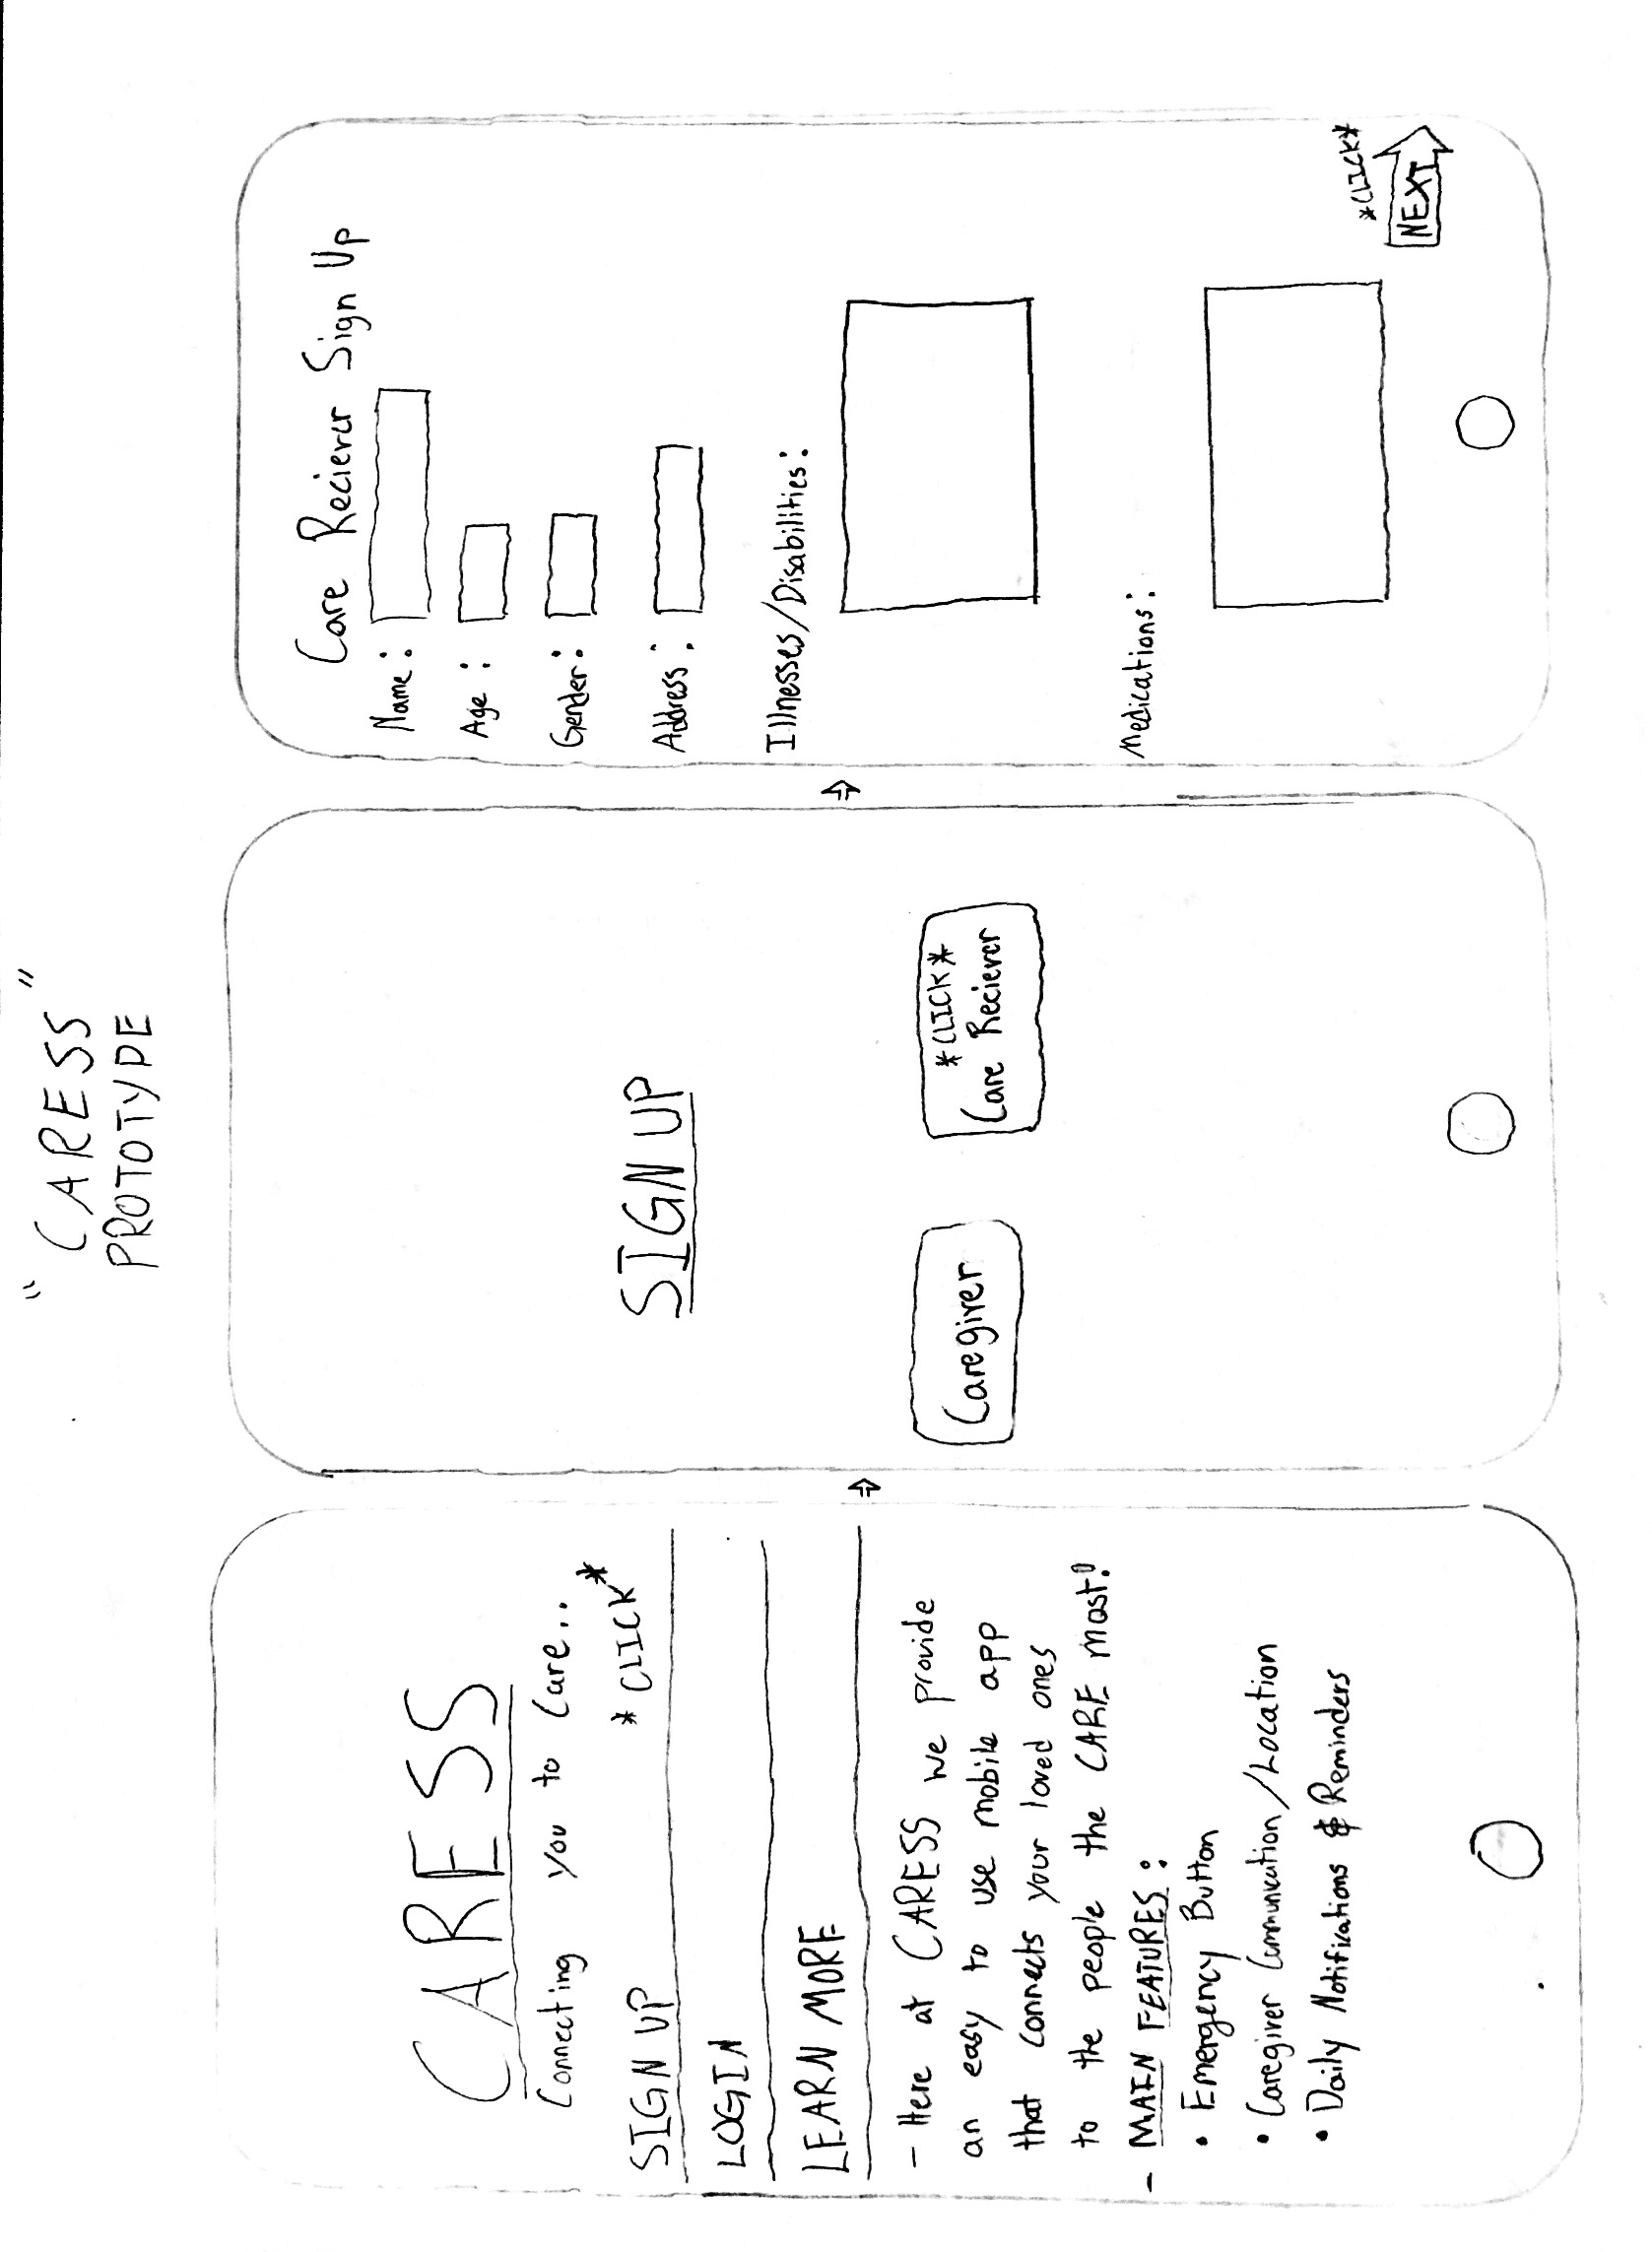 " CARESS "
PROTOTYPE
CARESS
Connecting you to Care..
SIGN UP *CLICK*
LOGIN
LEARN MORE
- Here at CARESS we provide
an easy to use mobile app
that connects your loved ones
to the people the CARE most!
- MAIN FEATURES:
• Emergency Button
• Caregiver Communication/Location
• Daily Notifications & Reminders
SIGN UP
Caregiver
*CLICK*
Care Reciever
Care Reciever Sign Up
Name:
Age:
Gender:
Address:
Illnesses/Disabilities:
Medications:
*CLICK*
NEXT